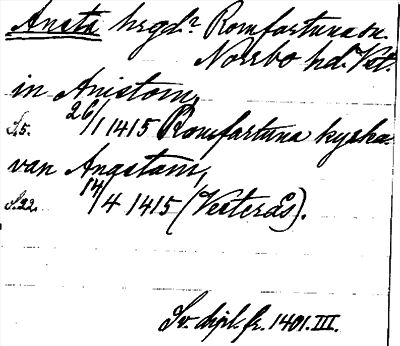 Ansta hrgd? Romfartuna sn.
Norrbo hd. Vst.
in Anistom,
S.5. 26/1 1415 Romfartuna kyrka.
van Angstam,
S.22. 14/4 1415 (Vesterås).
Sv. dipl. fr. 1401. III.